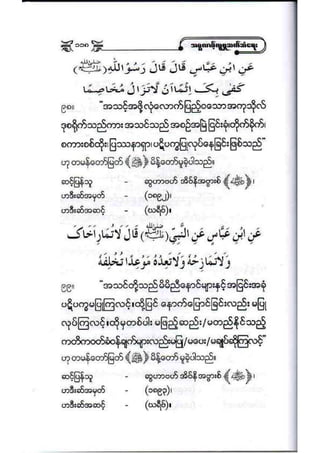 ၁၁၈ အမူလတန်ကူရအာတ်အံစေး
عَنِ ابْنِ عَبَّاسٍ قَالَ قَالَ رَسُوْلُ اللهِ (ﷺ)
كَفٰى بِكَ اِثْمًا اَنْ لَّا تَزَالَ مُخَاصِمًا
၉၈။ "အသင့်အဖို့လုံလောက်ပြည့်ဝသောအကုသိုလ်
ဒုစရိုက်သည်ကား အသင်သည် အစဉ်အမြဲငြင်းခုံတိုက်ခိုက်၊
စကားစစ်ထိုး၊ပြဿနာရှာ၊ ပဋိပက္ခပြုလုပ်နေခြင်းဖြစ်သည်"
ဟု တမန်တော်မြတ် (ﷺ) မိန့်တော်မူခဲ့ပါသည်။
ဆင့်ပြန်သူ - ဆွဟာဗဟ် အိဗ်နိအဗ္ဗာစ် (ﷺ)၊
ဟဒီးဆ်အမှတ် - (၁၈၉၂)၊
ဟဒီးဆ်အဆင့် - (ဃရီဗ်)။
عَنِ ابْنِ عَبَّاسٍ عَنِ النَّبِيِّ (ﷺ) قَالَ لَا تُمَارِ اَخَاكَ
وَلَا تُمَازِحْهُ وَلَا تَعِدْهُ مَوْعِدًا تُخْلِفَهُ
၉၉။ "အသင်တို့သည်မိမိညီနောင်များနှင့်အငြင်းအခုံ
ပဋိပက္ခမပြုကြလင့်၊ထို့ပြင် နောက်ပြောင်ခြင်းလည်း မပြု
လုပ်ကြလင့်၊ထိုမှတစ်ပါး မဖြည့်ဆည်း/မတည်နိုင်သည့်
ကတိကဝတ်ခံဝန်ချက်များလည်းမပြု/မပေး/မချုပ်ဆိုကြလင့်"
ဟု တမန်တော်မြတ် (ﷺ) မိန့်တော်မူခဲ့ပါသည်။
ဆင့်ပြန်သူ - ဆွဟာဗဟ် အိဗ်နိအဗ္ဗာစ် (ﷺ)၊
ဟဒီးဆ်အမှတ် - (၁၈၉၃)၊
ဟဒီးဆ်အဆင့် - (ဃရီဗ်)။